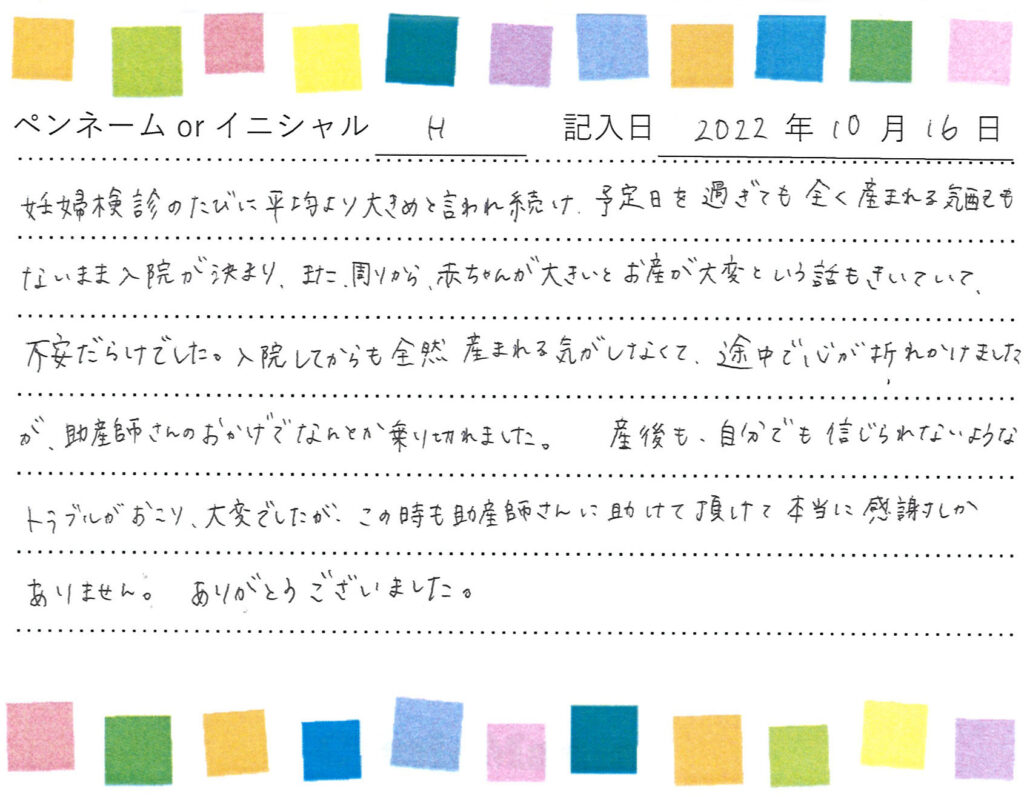 ペンネーム or イニシャル H 記入日 2022 年 10 月 16 日
妊婦検診のたびに平均より大きめと言われ続け、予定日を過ぎても全く産まれる気配も
ないまま入院が決まり、また、周りから、赤ちゃんが大きいとお産が大変という話もきいていて、
不安だらけでした。入院してからも全然産まれる気がしなくて、途中で心が折れかけました
が、助産師さんのおかげでなんとか乗り切れました。 産後も、自分でも信じられないような
トラブルがおこり、大変でしたが、この時も助産師さんに助けて頂けて本当に感謝しか
ありません。 ありがとうございました。